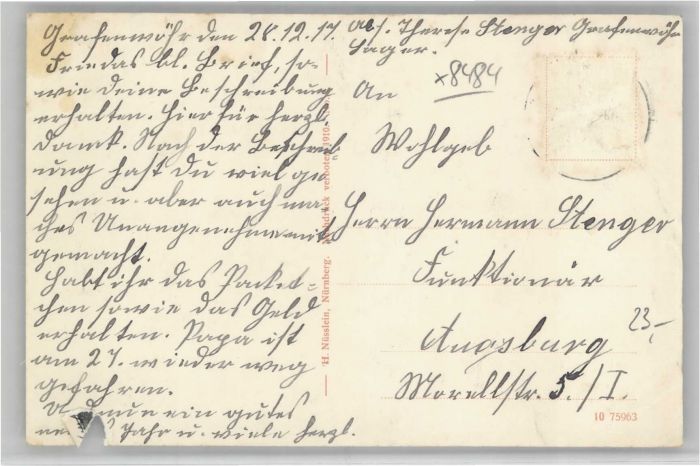 Grafenwöhr den 28.12.17.
Friedas bl. Brief, so-
wie deine Beschreibung
erhalten. Hier für herzl.
Dank. Nach der Beschreib-
ung hast du viel ge-
sehen u. aber auch man-
ches Unangenehme mit
gemacht.
Habt ihr das Packet-
chen sowie das Geld
erhalten. Papa ist
am 27. wieder weg
gefahren.
nun ein gutes
Jahr u. viele herzl.
H. Nüsslein, Nürnberg. Nachdruck verboten. 1910.
Abs. Therese Stenger Grafenwöhr
Lager.
x8484
An
Wohlgeb
Herrn Hermann Stenger
Funktionär
23,-
Augsburg
Morellstr. 5./I.
10 75963